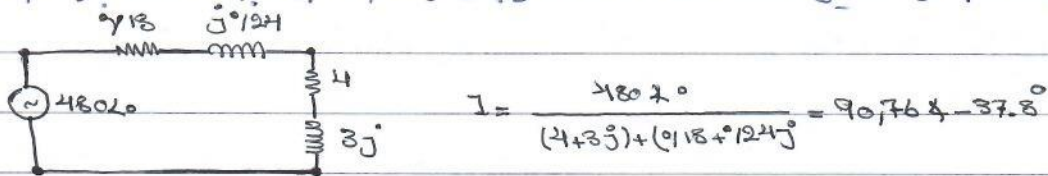 0/18 j0/24
480∠0
4
3j
I = 480∠0 / (4+3j)+(0/18+0/24j) = 90,76∠-37.8°